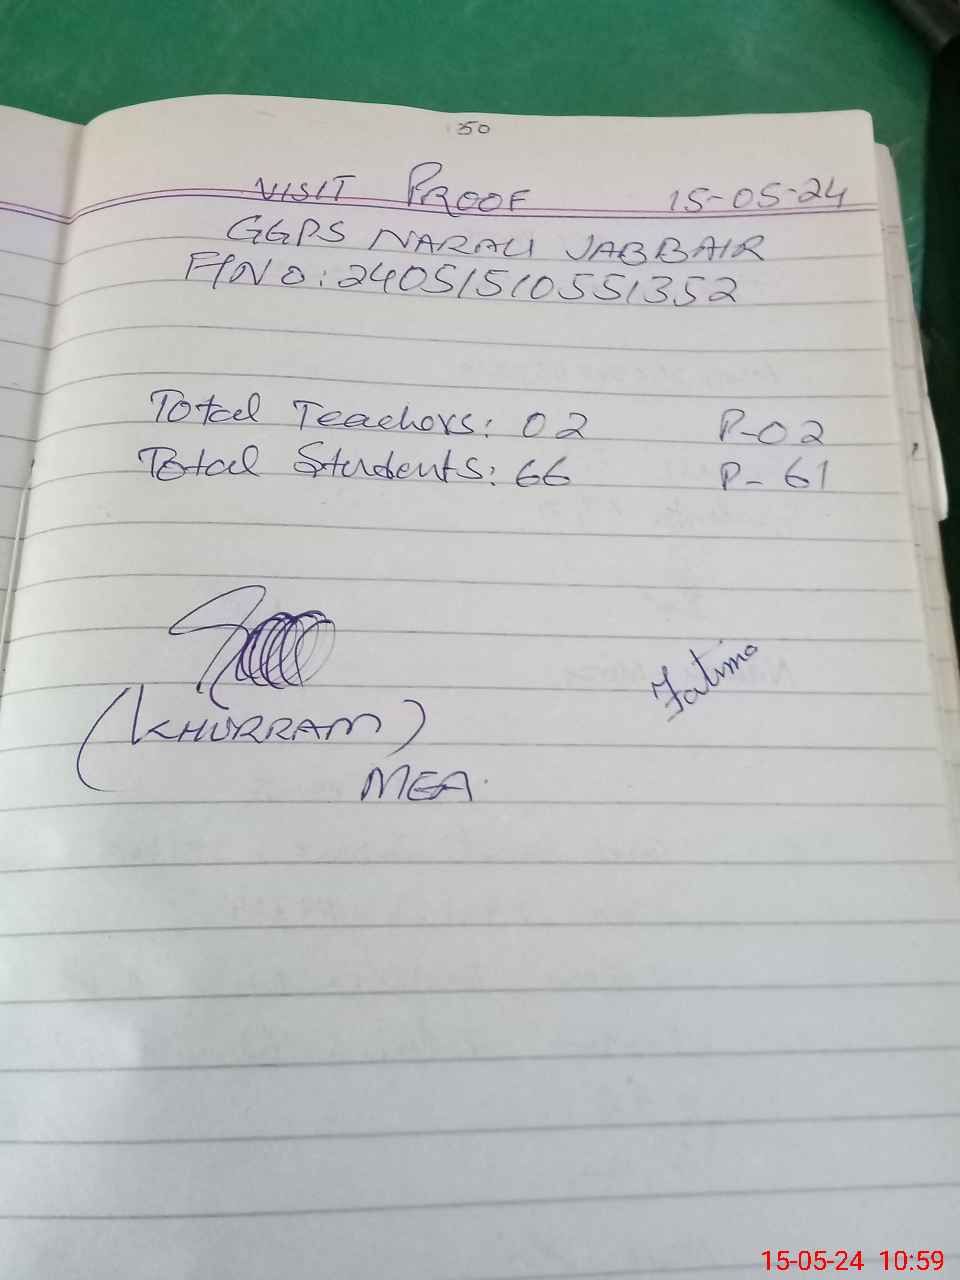 50
VISIT PROOF 15-05-24
GGPS NARALI JABBAIR
F/NO: 24051510551352
Total Teachers: 02 P-02
Total Students: 66 P-61
(KHURRAM) Fatima
MEA.
15-05-24 10:59